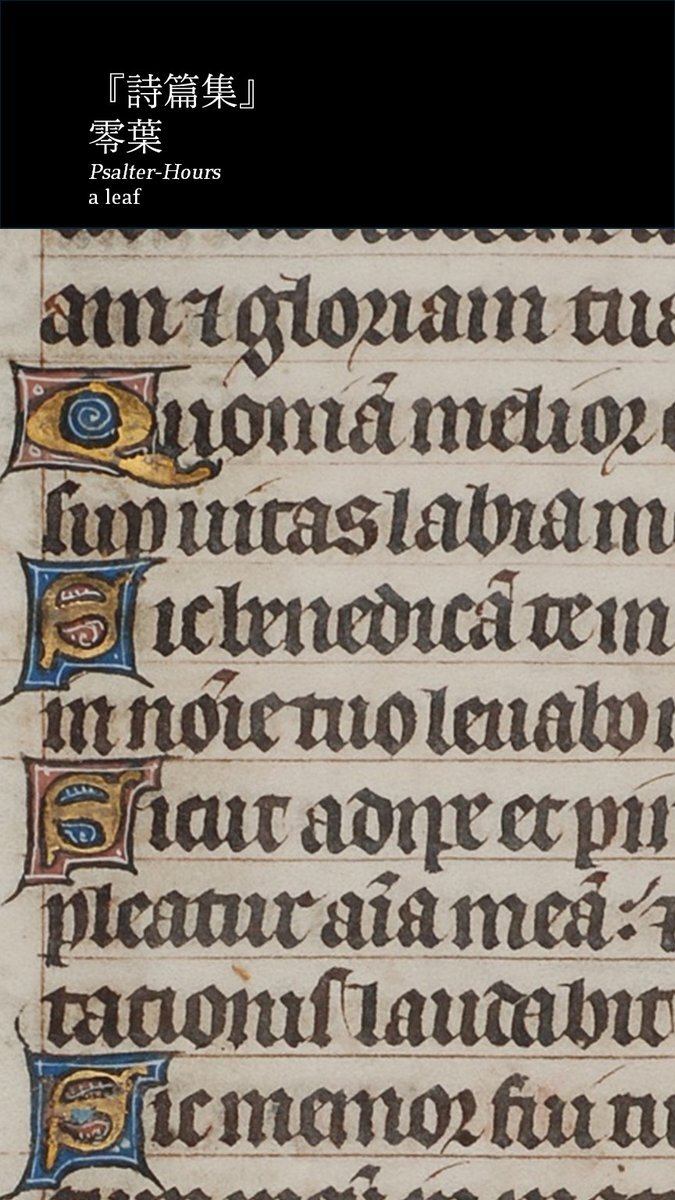 『詩篇集』
零葉
Psalter-Hours
a leaf
am ⁊ gloriam tua
Quoniā melior
sup uitas labia m
Sic benedicā te in
in nōīe tuo leuabo
Sicut adipe et pin
pleatur aīa meā :
tationis laudabit
Sic memor fui tu